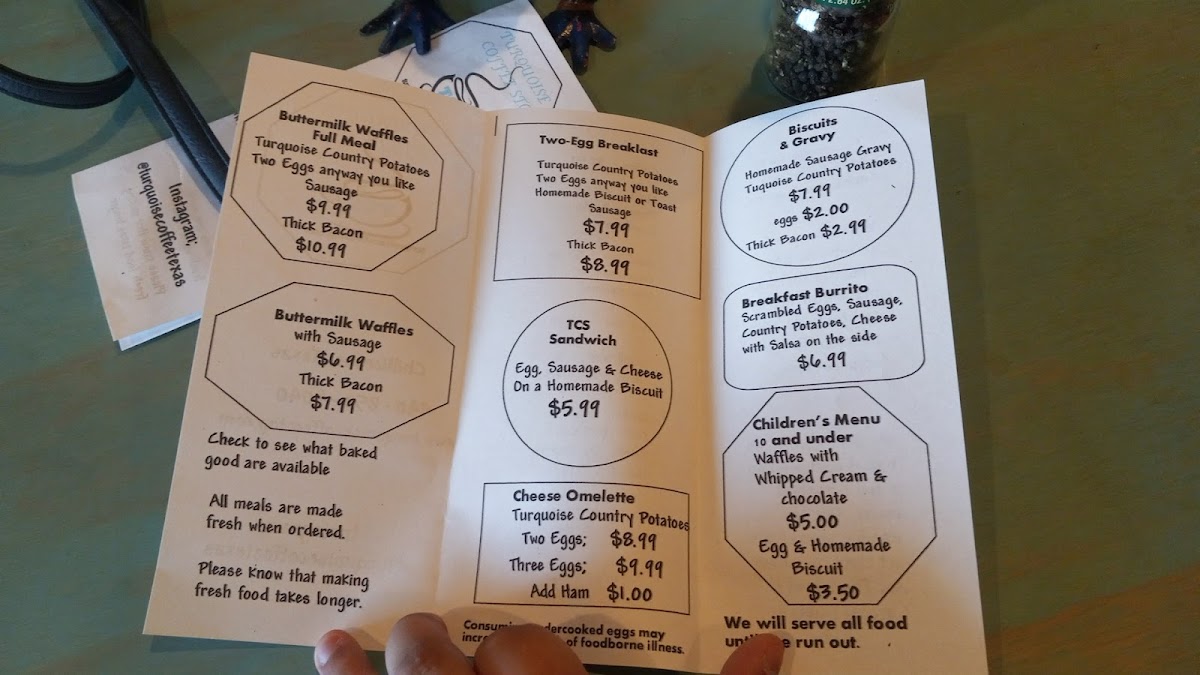 TURQUOISE
COFFEE
Instagram;
@turquoisecoffeetexas
Buttermilk Waffles
Full Meal
Turquoise Country Potatoes
Two Eggs anyway you like
Sausage
$9.99
Thick Bacon
$10.99
Buttermilk Waffles
with Sausage
$6.99
Thick Bacon
$7.99
Check to see what baked
good are available
All meals are made
fresh when ordered.
Please know that making
fresh food takes longer.
Two-Egg Breakfast
Turquoise Country Potatoes
Two Eggs anyway you like
Homemade Biscuit or Toast
Sausage
$7.99
Thick Bacon
$8.99
TCS
Sandwich
Egg, Sausage & Cheese
On a Homemade Biscuit
$5.99
Cheese Omelette
Turquoise Country Potatoes
Two Eggs; $8.99
Three Eggs; $9.99
Add Ham $1.00
eggs may
of foodborne illness.
Biscuits
& Gravy
Homemade Sausage Gravy
Tuquoise Country Potatoes
$7.99
eggs $2.00
Thick Bacon $2.99
Breakfast Burrito
Scrambled Eggs, Sausage,
Country Potatoes, Cheese
with Salsa on the side
$6.99
Children's Menu
10 and under
Waffles with
Whipped Cream &
chocolate
$5.00
Egg & Homemade
Biscuit
$3.50
We will serve all food
run out.